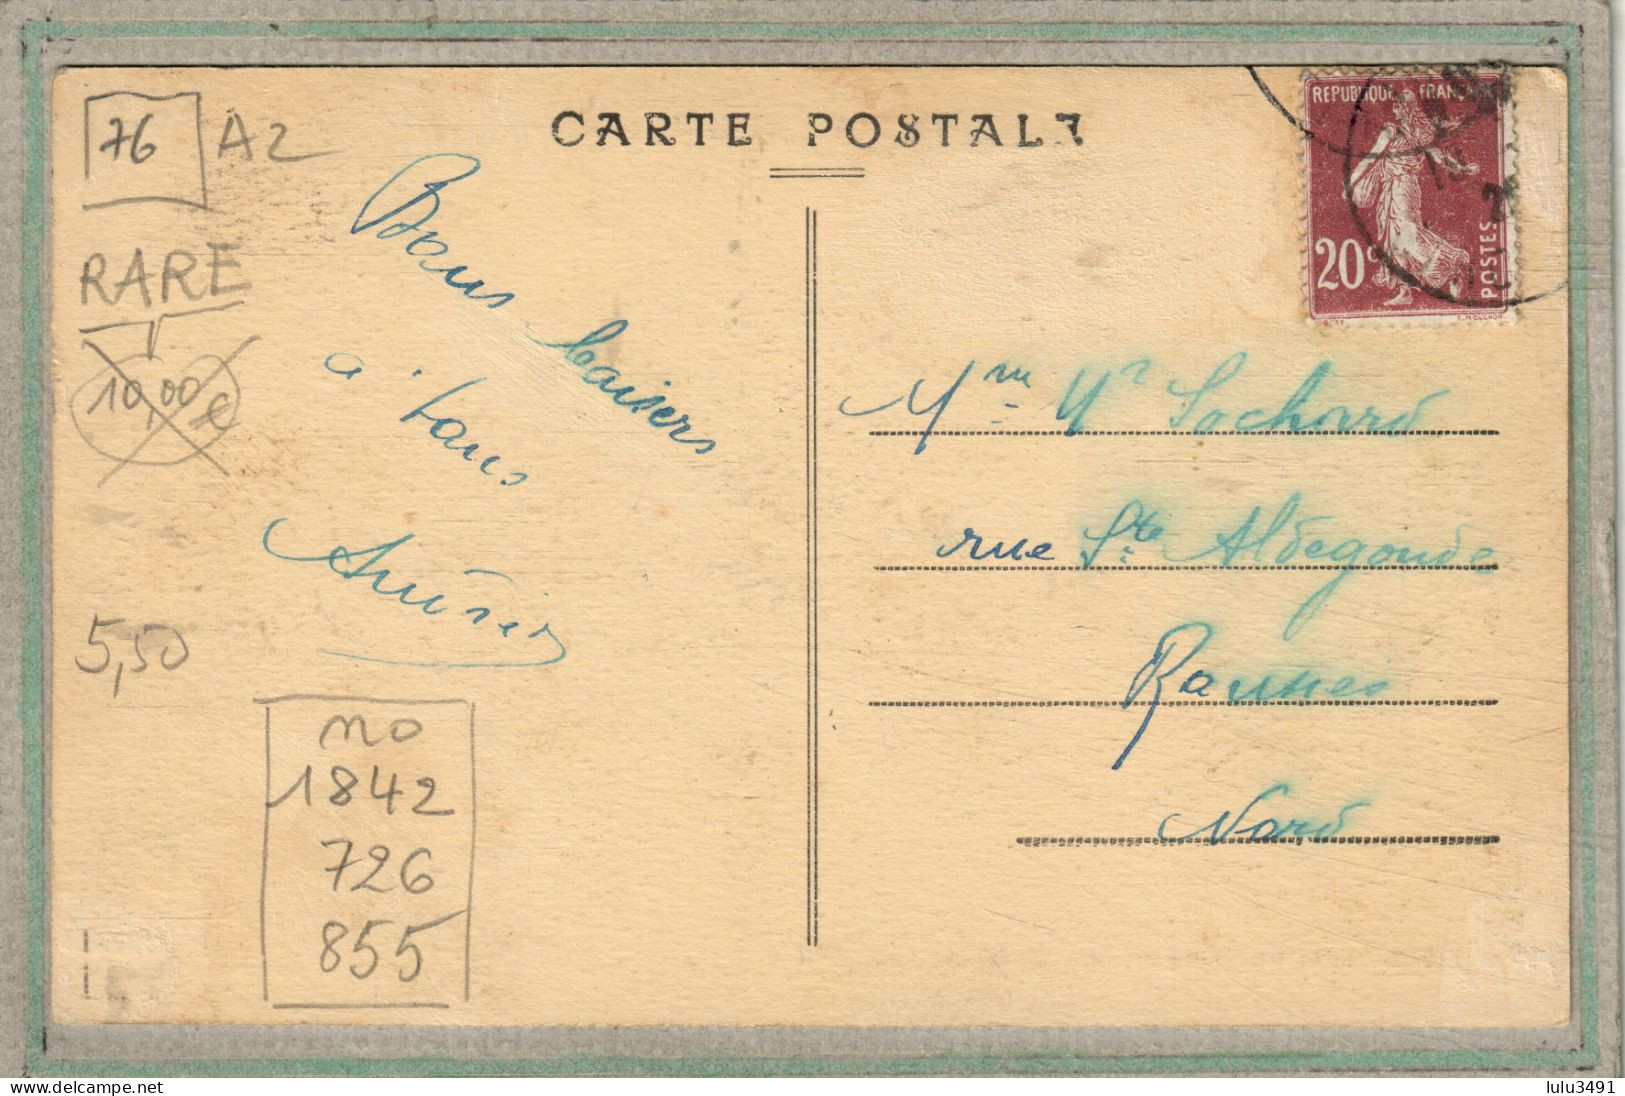 CARTE POSTALE
76
A2
RARE
10,00 €
5,50
no
1842
726
855
Bons baisers
a tous
REPUBLIQUE FRANÇAISE
20c
POSTES
Mme Mr Sochard
rue Ste Aldegonde
Nord
delcampe.net
lulu3491